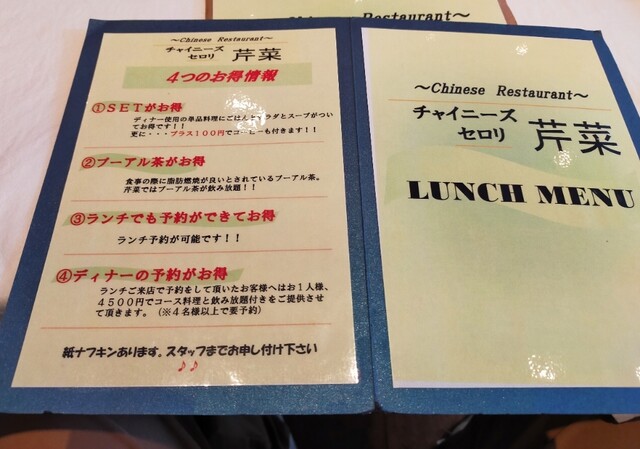 Chinese Restaurant～
～Chinese Restaurant～
チャイニーズ
セロリ 芹菜
4つのお得情報
①SETがお得
ディナー使用の単品料理にごはんとサラダとスープがつい
てお得です！！
更に・・・プラス100円でコーヒーも付きます！！
②プーアル茶がお得
食事の際に脂肪燃焼が良いとされているプーアル茶。
芹菜ではプーアル茶が飲み放題！！
③ランチでも予約ができてお得
ランチ予約が可能です！！
④ディナーの予約がお得
ランチご来店で予約をして頂いたお客様へはお1人様、
4500円でコース料理と飲み放題付きをご提供させ
て頂きます。（※4名様以上で要予約）
紙ナフキンあります。スタッフまでお申し付け下さい
♪♪
～Chinese Restaurant～
チャイニーズ
セロリ 芹菜
LUNCH MENU